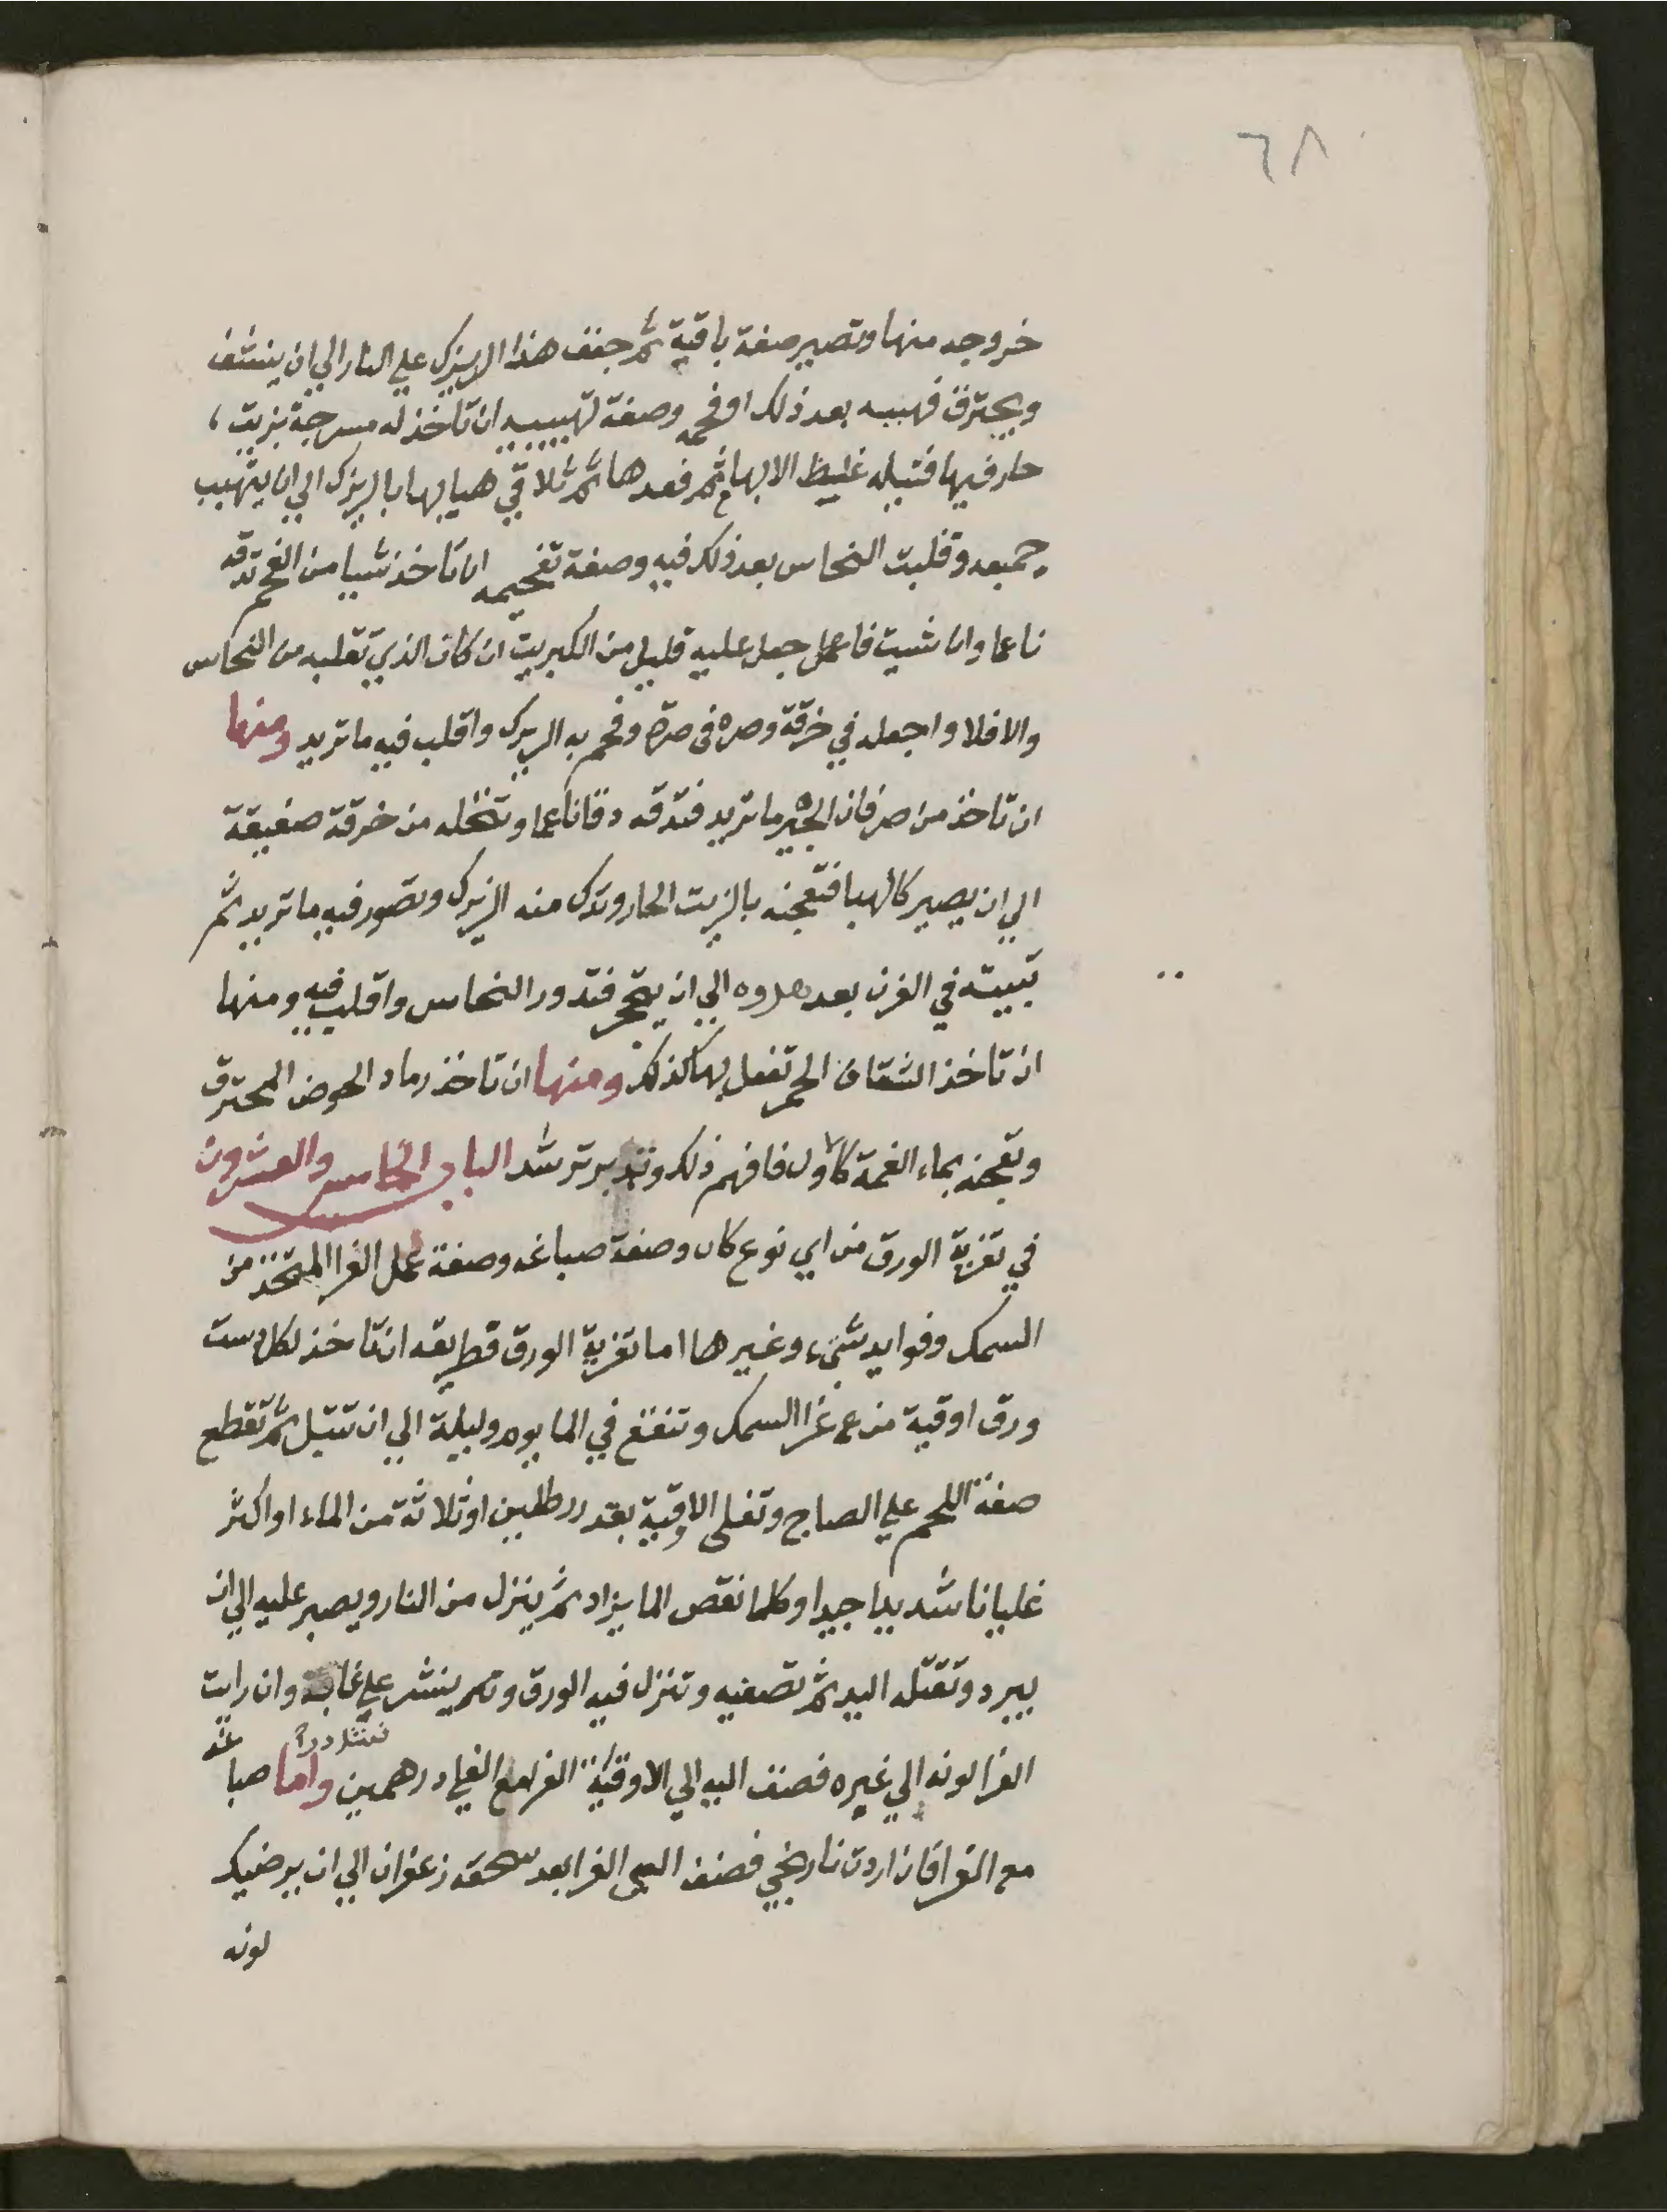 ٦٨
خروجه منها وتصير صفة باقية ثم جفف هذا الريزك علي النار الي ان ينشف
ويحترق فهببه بعد ذلك او فحمه وصفة تهبيبه ان تاخذ له مسرجة بزيت
حار فيها فتيله غليظ الابهام ثم قعدها ثم تلاقي هبابها بالريزك الي ان يتهبب
جميعه وقلبت النحاس بعد ذلك فيه وصفة تفحيمه ان تاخذ شيا من الفحم تدقه
ناعما وان شيت فاعمل جعل عليه قليل من الكبريت ان كان الذي تقلبه من النحاس
والا فلا واجعله في خرقة وصره في صرة وفحم به الريزك واقلب فيه ما تريد ومنها
ان تاخذ من صرفان الجير ما تريد فتدقه دقا ناعما وتنخله من خرقة صفيقة
الي ان يصير كالهبا فتعجنه بالزيت الحار وتدك منه الريزك وتصور فيه ما تريد ثم
تبيته في الفرن بعد الي ان يتحجر فتدور النحاس واقلب فيه ومنها
ان تاخذ الشقاف الحمر تفعل بها كذلك ومنها ان تاخذ رماد الحوض المحترق
وتعجنه بماء الفحمة كالاول فافهم ذلك وتدبر ترشد الباب الخامس والعشرون
في تغرية الورق من اي نوع كان وصفة صباغه وصفة عمل الغرا المتخذ من
السمك وفوايد شتي وغيرها اما تغرية الورق فطريقه ان تاخذ لكل دست
ورق اوقية من غرا السمك وتنقع في الما يوم وليلة الي ان تتبل ثم تقطع
صفة اللحم علي الصاج وتغلي الاوقية بقدر رطلين او ثلاثة من الماء او اكثر
غليانا شديدا جيدا وكلما نقص الما يزاد ثم ينزل من النار ويصبر عليه الي ان
يبرد وتقتله اليد ثم تصفيه وتنزل فيه الورق وتم ينشر علي غابة وان رايت
الغرا لونه الي غيره فضف اليه الي الاوقية الغرا مع الغلي درهمين واما صباغه
مع الغرا فان اردت نارنجي فضف الي الغرا بعد سحقه زعفران الي ان يرضيك
لونه